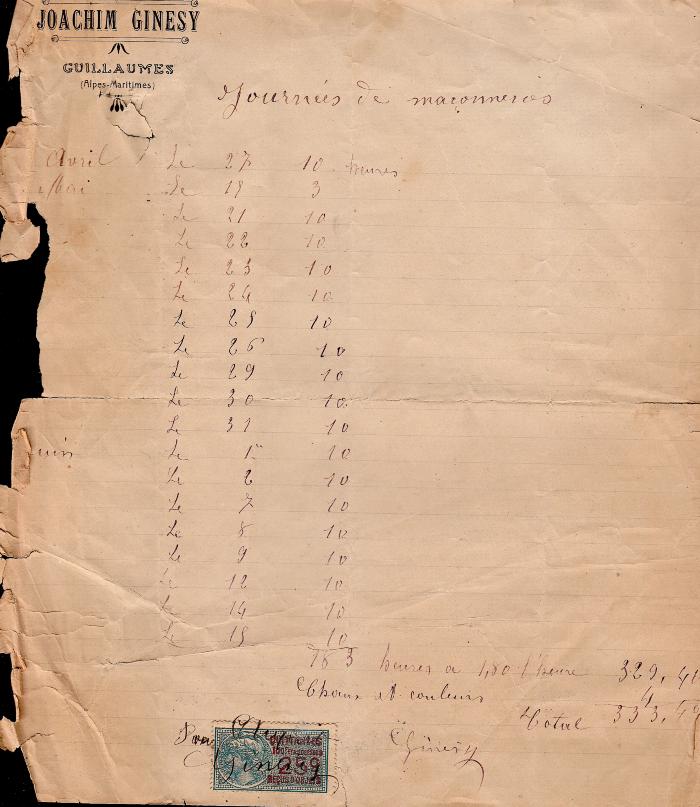 JOACHIM GINESY
GUILLAUMES
(Alpes-Maritimes)
Journées de maçonneros
Avril Le 27 10 heures
Mai Le 19 3
Le 21 10
Le 22 10
Le 23 10
Le 24 10
Le 25 10
Le 26 10
Le 29 10
Le 30 10
Le 31 10
Juin Le 1er 10
Le 2 10
Le 7 10
Le 8 10
Le 9 10
Le 12 10
Le 14 10
Le 15 10
183 heures a 1,80 l'heure 329,40
Chaux et couleurs 4
Total 333,40
Ginésy
Ginésy
239